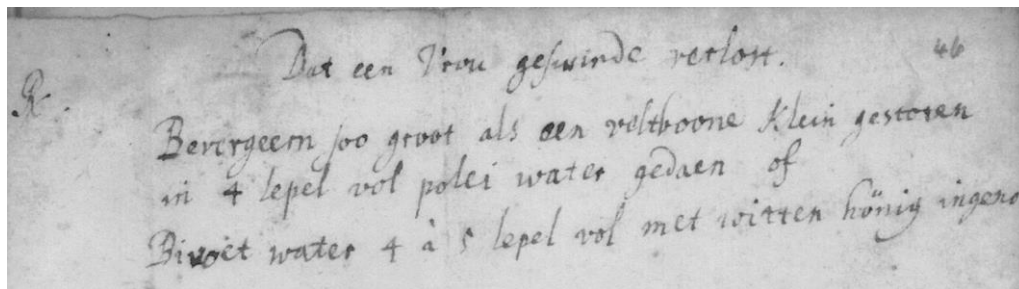 46
Dat een Vrou geswinde verlost.
R.
Bevergeern soo groot als een veltboone Klein gestoten
in 4 lepel vol polei water gedaen of
Bivoet water 4 à 5 lepel vol met witten hönig ingeno